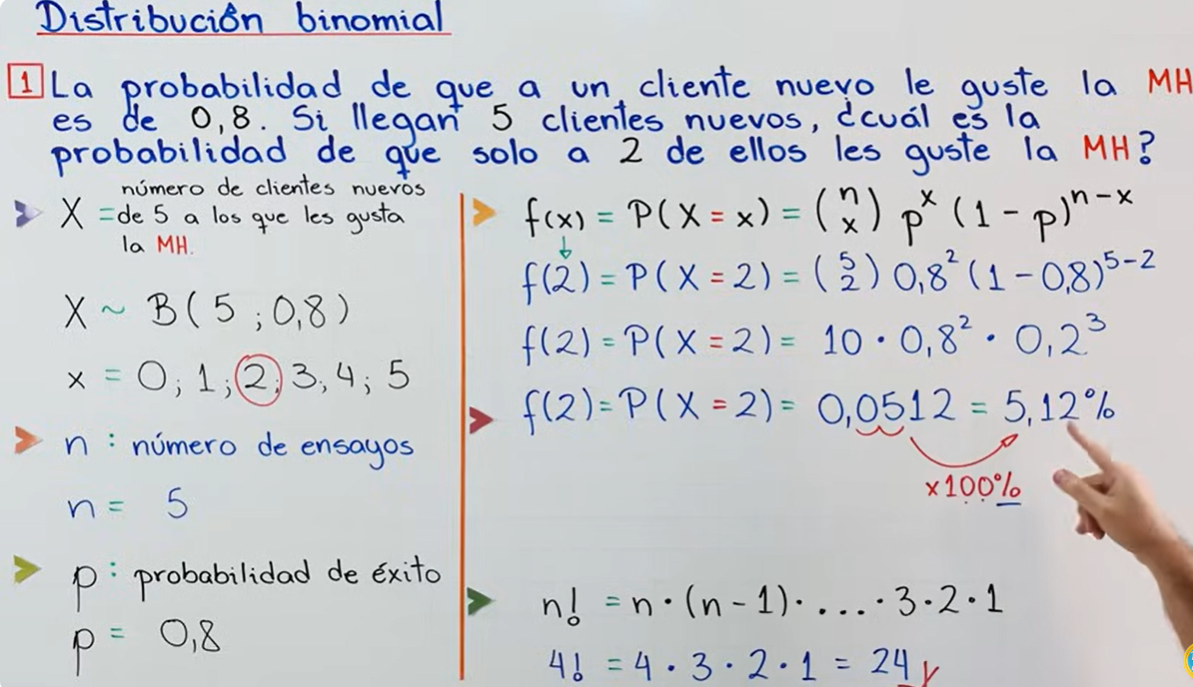 Distribución binomial
1 La probabilidad de que a un cliente nuevo le guste la MH
es de 0,8. Si llegan 5 clientes nuevos, ¿cuál es la
probabilidad de que solo a 2 de ellos les guste la MH?
X = número de clientes nuevos
de 5 a los que les gusta
la MH.
X ~ B(5;0,8)
x = 0; 1; 2; 3; 4; 5
n: número de ensayos
n = 5
p: probabilidad de éxito
p = 0,8
f(x) = P(X = x) = (n x) p^x (1 - p)^n-x
f(2) = P(X = 2) = (5 2) 0,8² (1 - 0,8)^5-2
f(2) = P(X = 2) = 10 · 0,8² · 0,2³
f(2) = P(X = 2) = 0,0512 = 5,12%
x100%
n! = n · (n - 1) · ... · 3 · 2 · 1
4! = 4 · 3 · 2 · 1 = 24